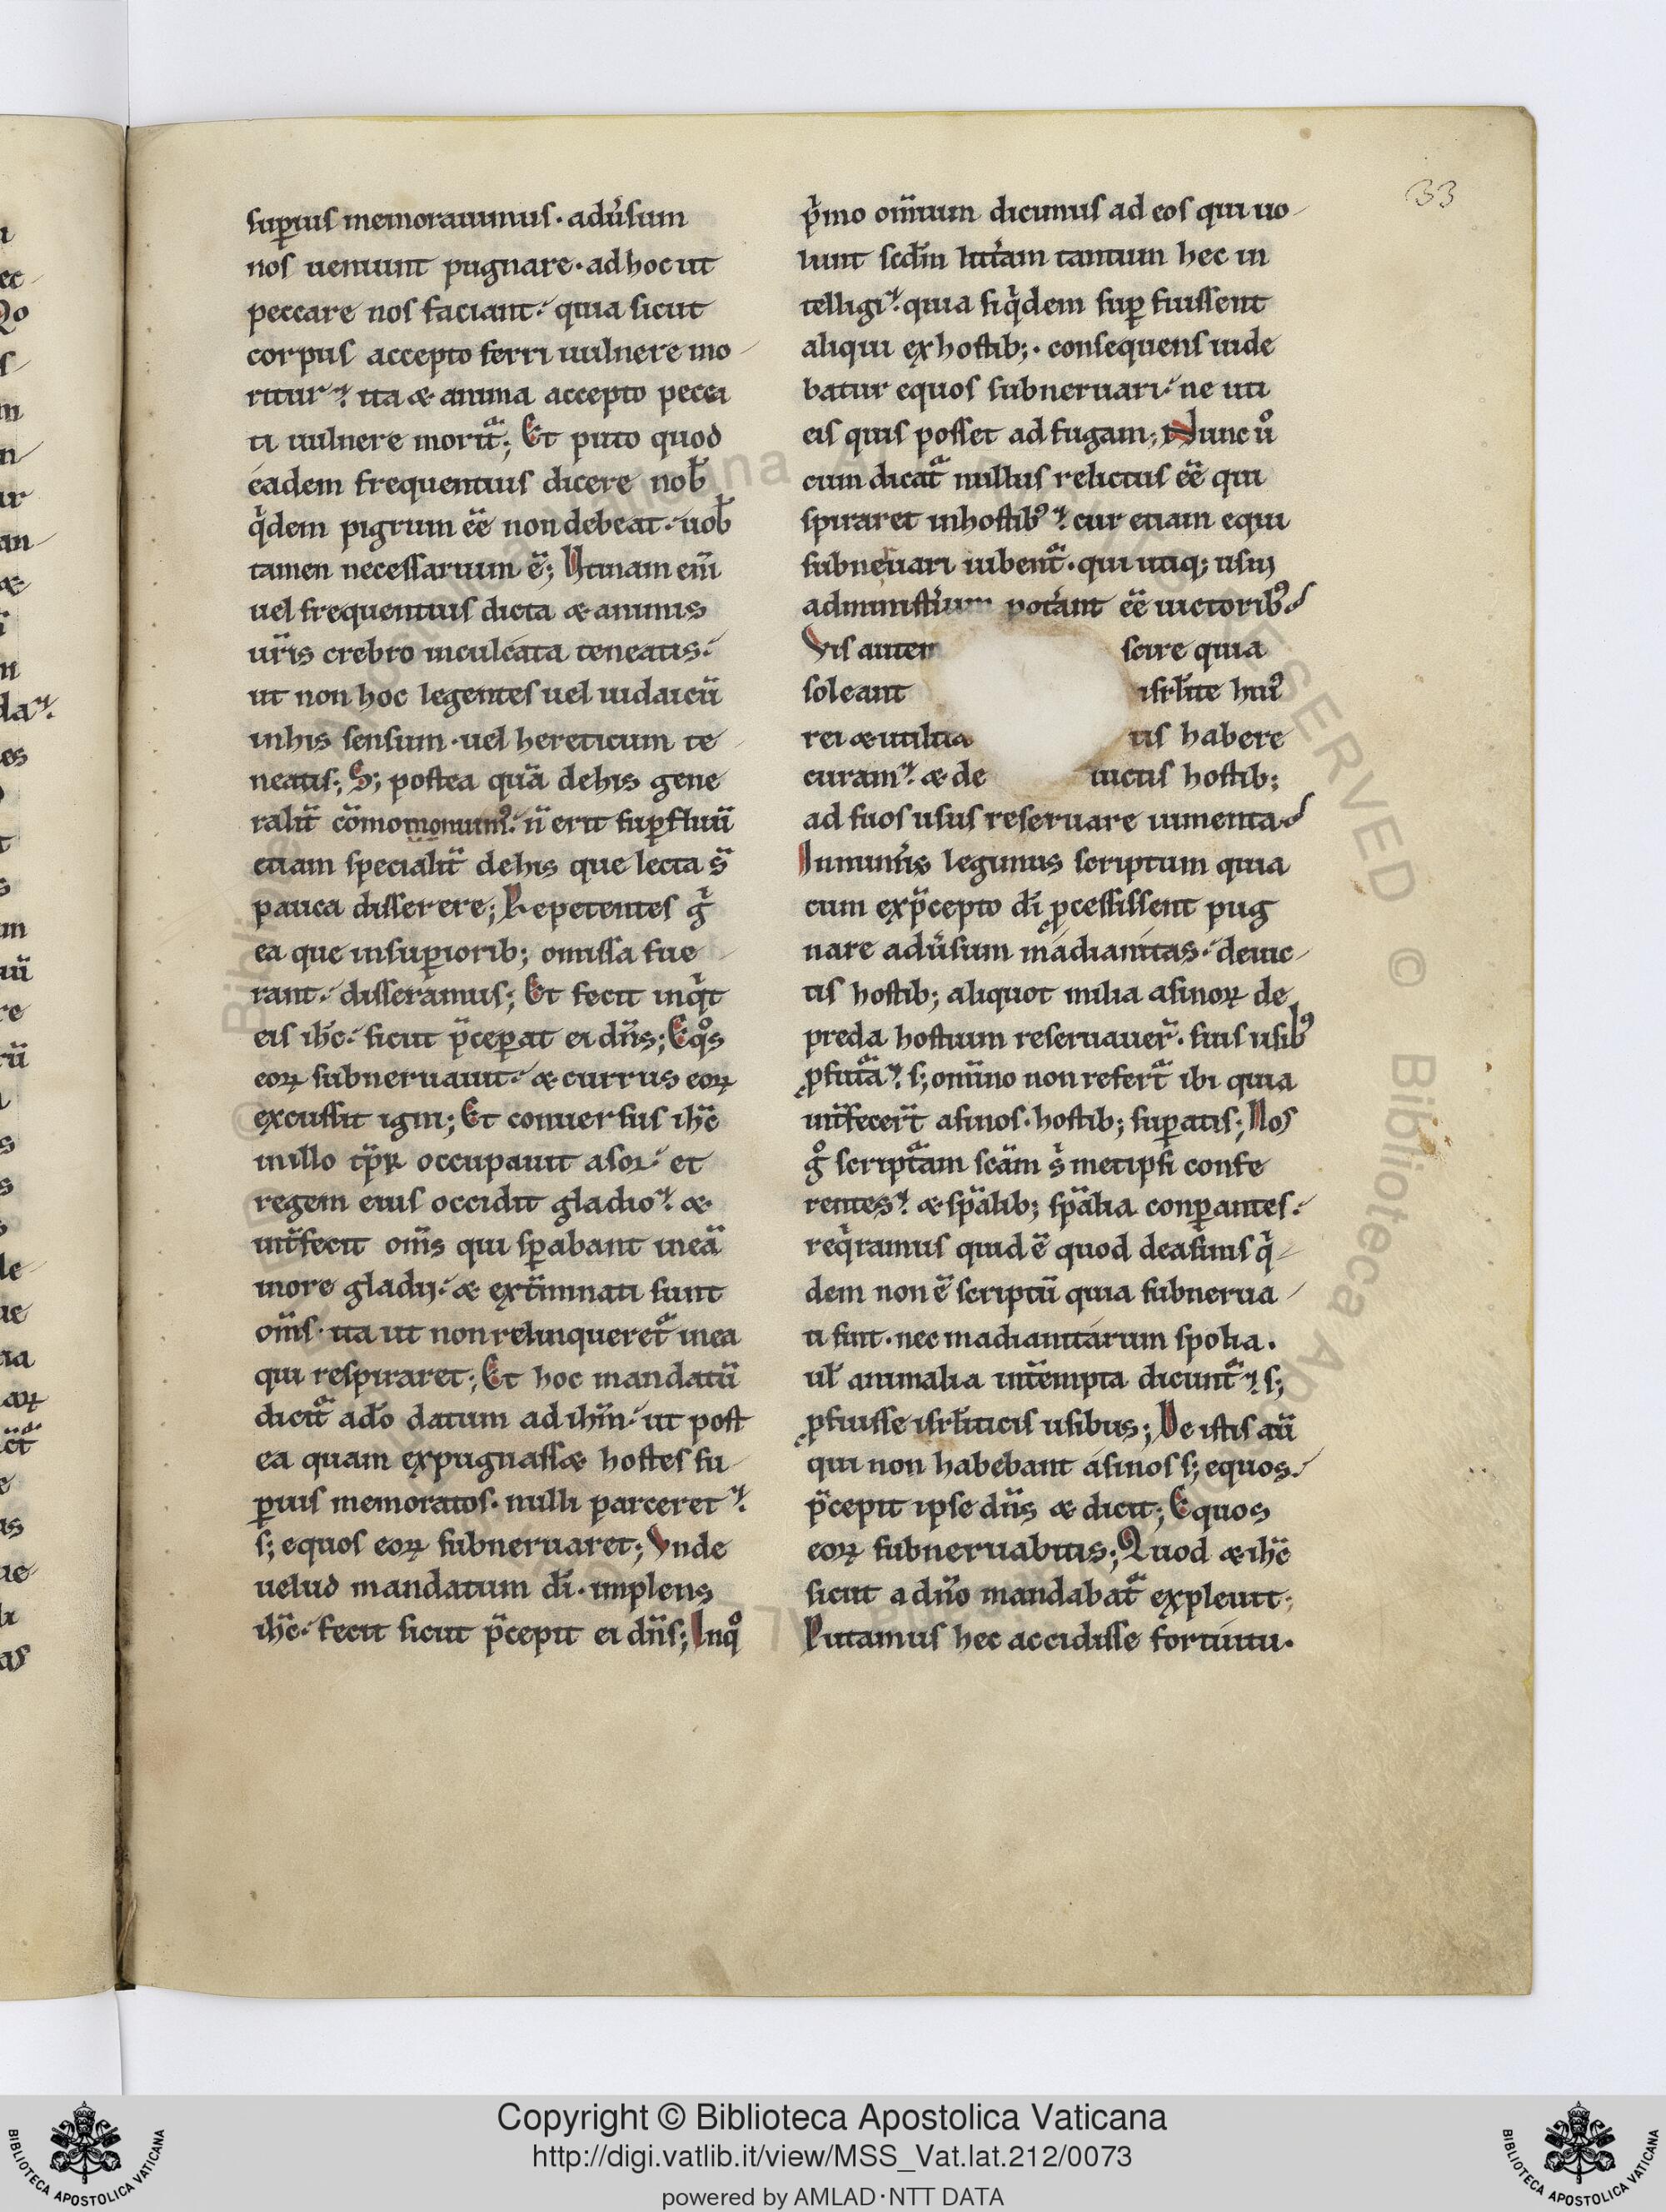 33
sup̱ius memorauimus · adu̓sum
nos ueniunt pugnare · ad hoc ut
peccare nos faciant · quia sicut
corpus accepto ferri uulnere mo
ritur · ita & anima accepto pecca
ti uulnere morit̄ ; Et puto quod
eadem frequentius dicere nob̄
q̓dem pigrum ēē non debeat · uob̄
tamen necessarium ē ; Utinam enī
uel frequentius dicta & animis
ur̄is crebro inculcata teneatis ·
ut non hoc legentes uel iudaicū
in his sensum · uel hereticum te
neatis ; S; postea quā de his gene
ralit̄ cōmomonuim᷒ · n̄ erit sup̱fluū
etiam specialit̄ de his que lecta s̄
pauca disserere ; Repetentes g̓
ea que in sup̱iorib; omissa fue
rant · disseramus ; Et fecit inq̓t
eis ihc̄ · sicut p̄cep̱at ei dn̄s ; Eq̊s
eoꝝ subneruauit · & currus eoꝝ
excussit igni ; Et conuersus ihc̄
in illo tp̄ꝛ occupauit asor · et
regem eius occidit gladio · &
int̄fecit om̄s qui sp̱abant in eā
more gladii · & ext̄minati sunt
om̄s · ita ut non relinqueret̄ in ea
qui respiraret ; Et hoc mandatū
dicit̄ a dō datum ad ihm̄ · ut post
ea quam expugnass& hostes su
p̱ius memoratos · nulli parceret ·
s; equos eoꝝ subneruaret ; Unde
uelud mandatum dī · implens
ihc̄ · fecit sicut p̄cepit ei dn̄s ; In q̊
p̓mo om̄ium dicimus ad eos qui uo
lunt scdm̄ litt̓am tantum hec in
telligi · quia siq̓dem sup̱ fuissent
aliqui ex hostib; · consequens uide
batur equos subneruari · ne uti
eis quis posset ad fugam ; Nunc ů
cum dicat̄ nullus relictus ēē qui
spiraret in hostib᷒ · cur etiam equi
subneruari iubent̄ · qui utiq; usui
administ̓ium pot̓ant ēē uictorib᷒
Vis autem scire quia
soleant isrl̄ite hui᷒
rei & utilita tis habere
curam · & de uictis hostib;
ad suos usus reseruare iumenta
In num̓is legimus scriptum quia
cum ex p̄cepto dī ꝓcessissent pug
nare adu̓sum madianitas · deuic
tis hostib; aliquot milia asinoꝝ de
preda hostium reseruauer̄ · suis usib᷒
ꝓfutā · s; om̄ino non refert̄ ibi quia
int̄fecert̄ asinos · hostib; sup̱atis ; Nos
g̊ script̄am scām s̓ metipsi confe
rentes · & sp̄alib; sp̄alia conp̱antes ·
req̓ramus quid ē quod de asinis q̓
dem non ē scriptū quia subnerua
ti sint · nec madianitarum spolia ·
ul̄ animalia int̄empta dicunt̄ · s;
ꝓfuisse isrl̄iticis usibus ; De istis aū
qui non habebant asinos s; equos ·
p̄cepit ipse dn̄s & dicit ; Equos
eoꝝ subneruabitis ; Quod & ihc̄
sicut a dn̄o mandabat̄ expleuit ;
Putamus hec accidisse fortuitu ·
Copyright © Biblioteca Apostolica Vaticana
http://digi.vatlib.it/view/MSS_Vat.lat.212/0073
powered by AMLAD·NTT DATA
BIBLIOTECA APOSTOLICA VATICANA
BIBLIOTECA APOSTOLICA VATICANA